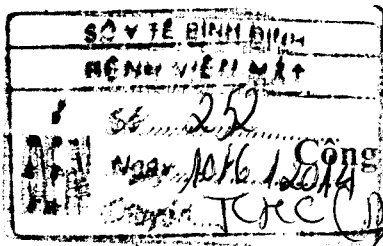 SỞ Y TẾ BÌNH ĐỊNH
BỆNH VIỆN MẮT
Số 252
Công
Ngày 10/6/2014
Chuyển TCHC